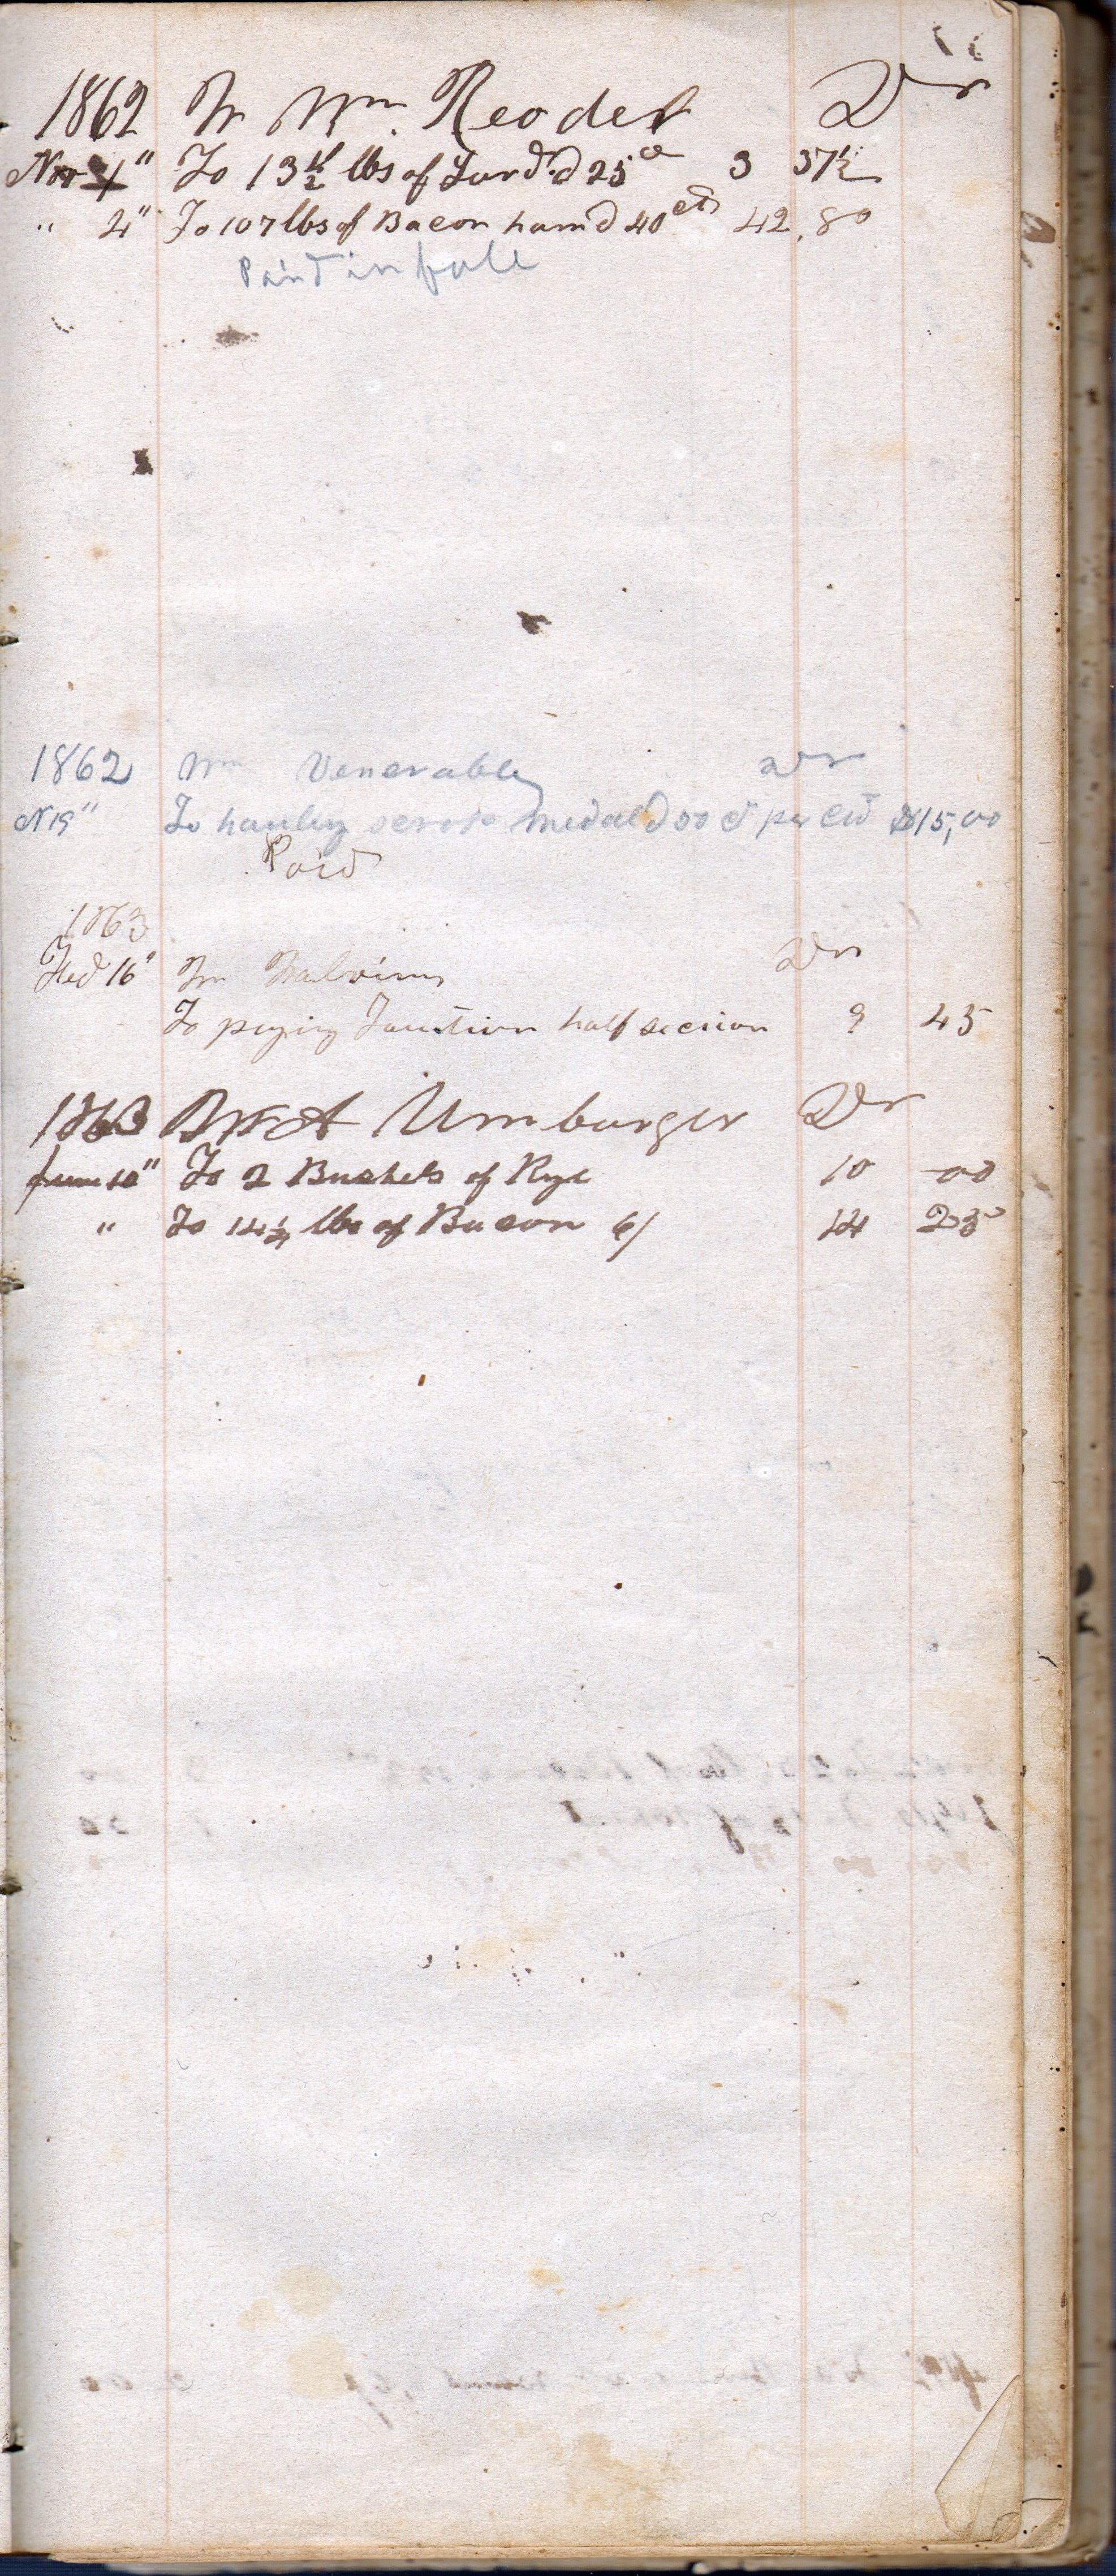 1862 Mr Wm. Reoder Dr
Nov 1" To 13 1/2 lbs of Lard @ 25 c 3 37 1/2
" 4" To 107 lbs of Bacon ham @ 40 cts 42.80
Paid in full
1862 Wm Venerable Dr
N 19" To hauling 50 ct per $15,00
Paid
1863
Feb 16" Dr
To paying half section 9 45
1863 Umbarger Dr
June 10" To 2 Bushels of Rye 10 00
" To 14 1/4 lbs of Bacon 6/ 14 25